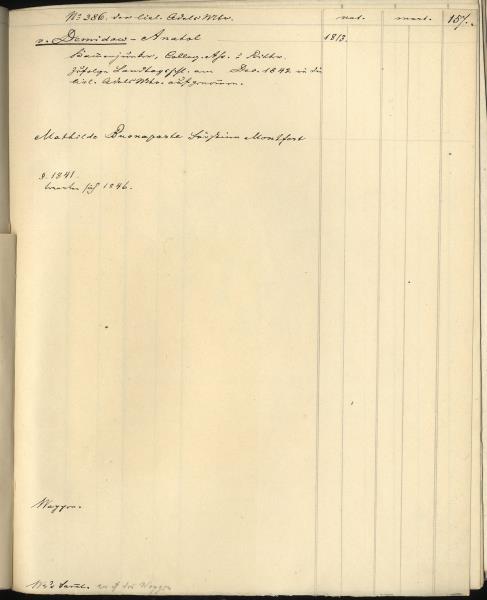 No 386. der livl. Adels Mtr. nat. mort. 157.
v. Demidow - Anatol 1813.
Kammerjunker, Colleg. Ass. & Ritter
zufolge Landtagsschl. am Dec. 1842 in die
livl. Adels Mtr. aufgenomm.
Mathilde Buonaparte Montfort
d. 1841.
sich 1846.
Wappen.